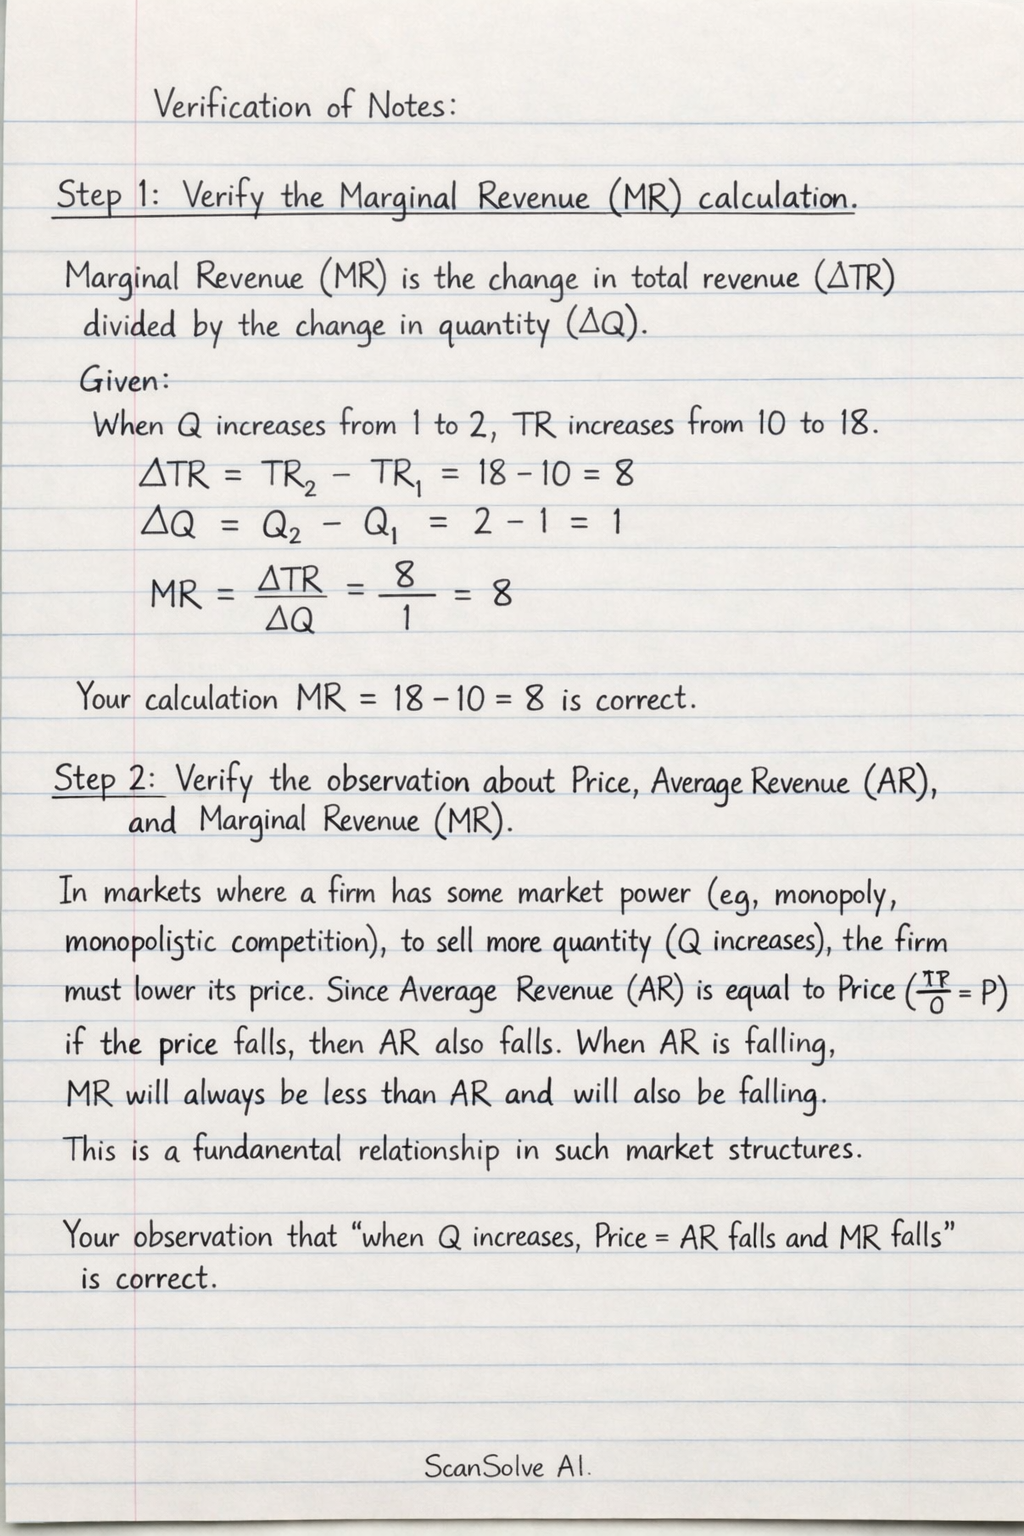 Verification of Notes:
Step 1: Verify the Marginal Revenue (MR) calculation.
Marginal Revenue (MR) is the change in total revenue (ΔTR)
divided by the change in quantity (ΔQ).
Given:
When Q increases from 1 to 2, TR increases from 10 to 18.
ΔTR = TR₂ − TR₁ = 18 − 10 = 8
ΔQ = Q₂ − Q₁ = 2 − 1 = 1
MR = ΔTR/ΔQ = 8/1 = 8
Your calculation MR = 18 − 10 = 8 is correct.
Step 2: Verify the observation about Price, Average Revenue (AR),
and Marginal Revenue (MR).
In markets where a firm has some market power (eg, monopoly,
monopolistic competition), to sell more quantity (Q increases), the firm
must lower its price. Since Average Revenue (AR) is equal to Price (TR/Q = P)
if the price falls, then AR also falls. When AR is falling,
MR will always be less than AR and will also be falling.
This is a fundanental relationship in such market structures.
Your observation that “when Q increases, Price = AR falls and MR falls”
is correct.
ScanSolve AI.